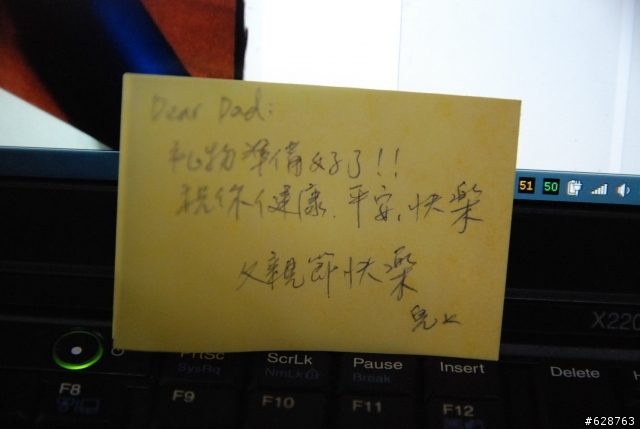 Dear Dad:
礼物準備好了!!
祝你健康、平安、快樂
父親節快樂
兒上
51 50
X220
PrtSc ScrLk Pause Insert Delete H
SysRq NmLk Break
F8 F9 F10 F11 F12
#628763